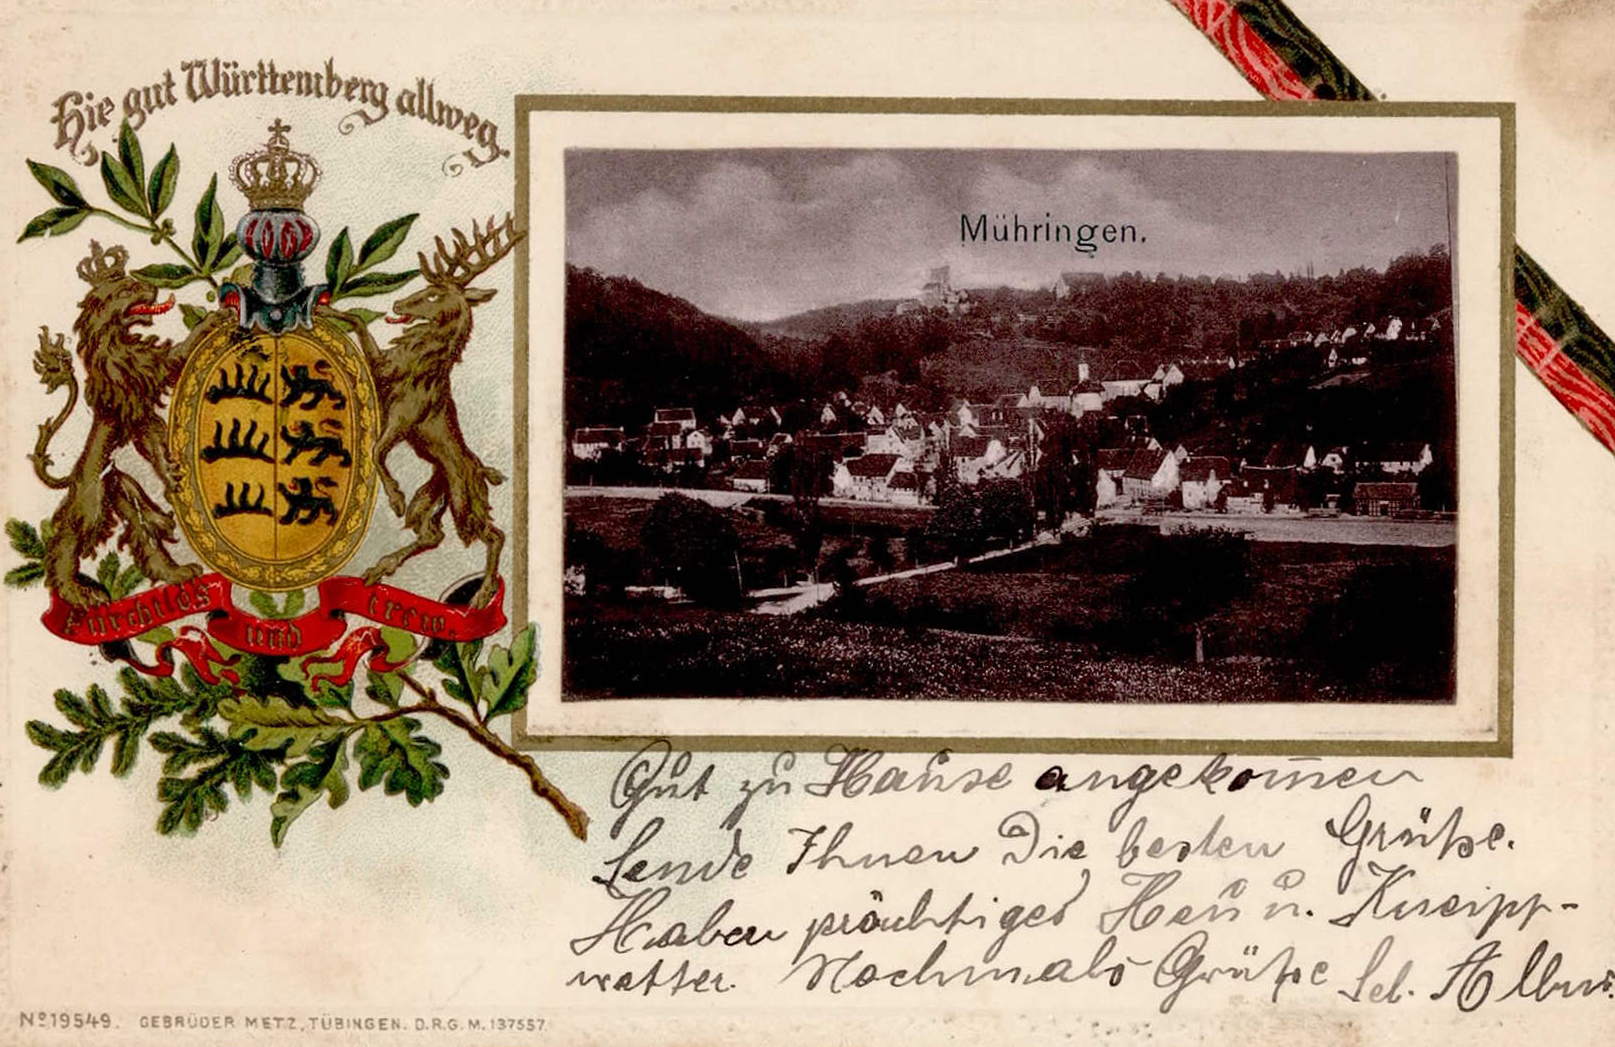 Hie gut Württemberg allweg.
Mühringen.
Furchtlos und trew.
Gut zu Hause angekom̄en
Sende Ihnen Die besten Grüße.
Haben prächtiges Heu u. Kneipp-
wetter. Nochmals Grüße
No 19549. GEBRÜDER METZ, TÜBINGEN. D.R.G.M. 137557.